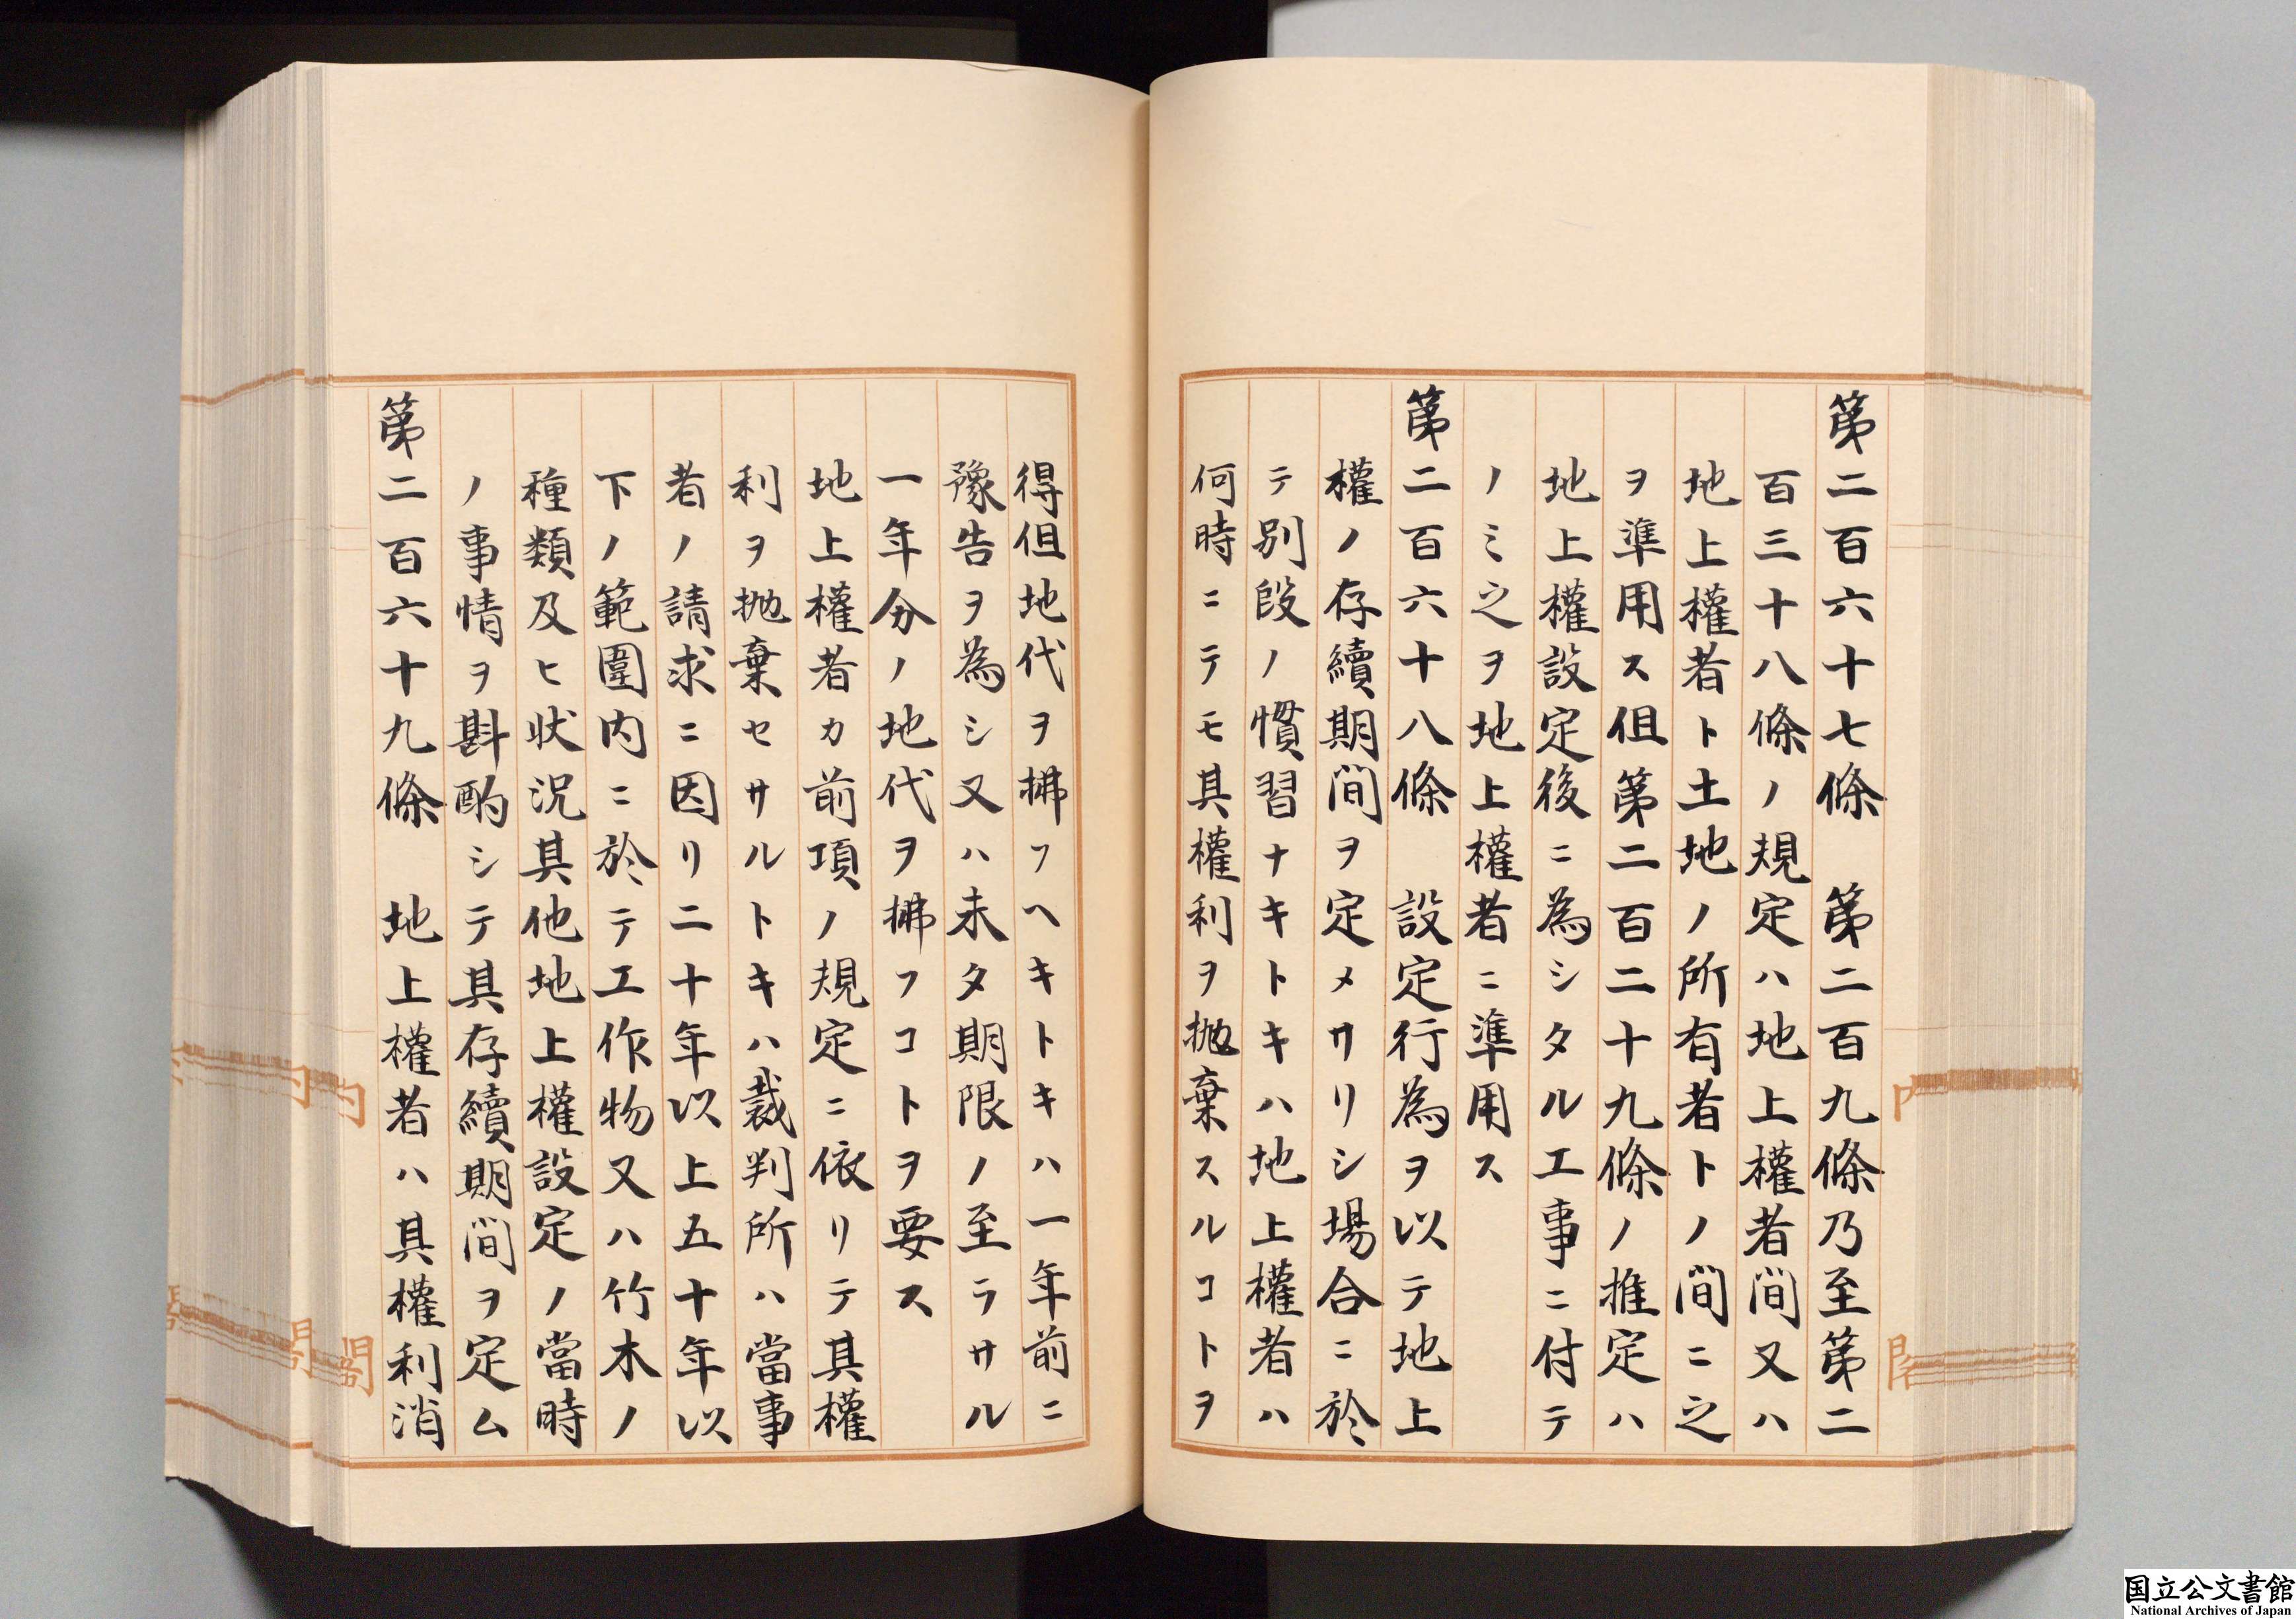 第二百六十七條　第二百九條乃至第二
百三十八條ノ規定ハ地上權者間又ハ
地上權者ト土地ノ所有者トノ間ニ之
ヲ準用ス但第二百二十九條ノ推定ハ
地上權設定後ニ為シタル工事ニ付テ
ノミ之ヲ地上權者ニ準用ス
第二百六十八條　設定行為ヲ以テ地上
權ノ存續期間ヲ定メサリシ場合ニ於
テ別段ノ慣習ナキトキハ地上權者ハ
何時ニテモ其權利ヲ抛棄スルコトヲ
得但地代ヲ拂フヘキトキハ一年前ニ
豫告ヲ為シ又ハ未タ期限ノ至ラサル
一年分ノ地代ヲ拂フコトヲ要ス
地上權者カ前項ノ規定ニ依リテ其權
利ヲ抛棄セサルトキハ裁判所ハ當事
者ノ請求ニ因リ二十年以上五十年以
下ノ範圍内ニ於テ工作物又ハ竹木ノ
種類及ヒ状況其他地上權設定ノ當時
ノ事情ヲ斟酌シテ其存續期間ヲ定ム
第二百六十九條　地上權者ハ其權利消
内
閣
国立公文書館
National Archives of Japan